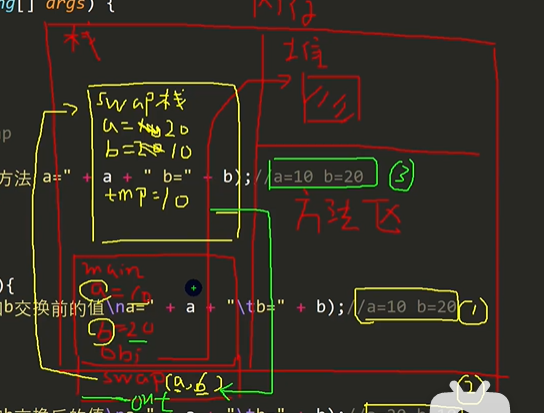 ng[] args) {
内存
栈
堆
swap栈
a=20
b=10
方法 a=" + a + " b=" + b);//a=10 b=20 ③
tmp=10
方法区
main
){
a=10
b交换前的值\na=" + a + "\tb=" + b);//a=10 b=20 ①
b=20
obj
swap(a,b)
out
②